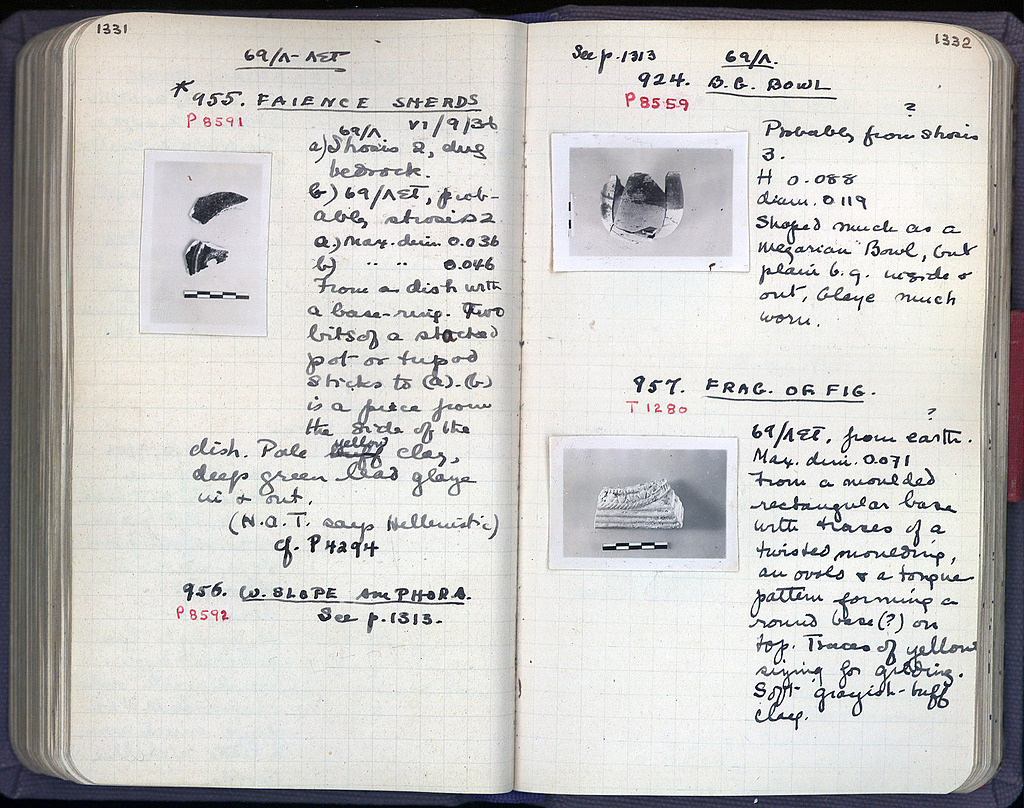 1331
69/Λ-ΛΣΤ
*955. FAIENCE SHERDS
P 8591
69/Λ VI/9/36
a) Strosis 2, dug
bedrock.
b) 69/ΛΣΤ, prob-
ably strosis 2
a) Max. dim. 0.036
b) " " 0.046
From a dish with
a base-ring. Two
bits of a stacked
pot or tripod
sticks to (a). (b)
is a piece from
the side of the
dish. Pale yellow clay,
deep green lead glaze
in & out.
(H.A.T. says Hellenistic)
cf. P 4294
956. W. SLOPE AMPHORA.
P 8592
See p. 1313.
1332
See p. 1313
69/Λ.
924. B.G. BOWL
P 8559
?
Probably from strosis
3.
H 0.088
diam. 0.119
Shaped much as a
Megarian Bowl, but
plain b.g. inside &
out, Glaze much
worn.
957. FRAG. OF FIG.
T 1280
?
69/ΛΣΤ, from earth.
Max. dim. 0.071
From a moulded
rectangular base
with traces of a
twisted moulding,
an ovolo & a tongue
pattern forming a
round base (?) on
top. Traces of yellow
sizing for gilding.
Soft grayish-buff
clay.